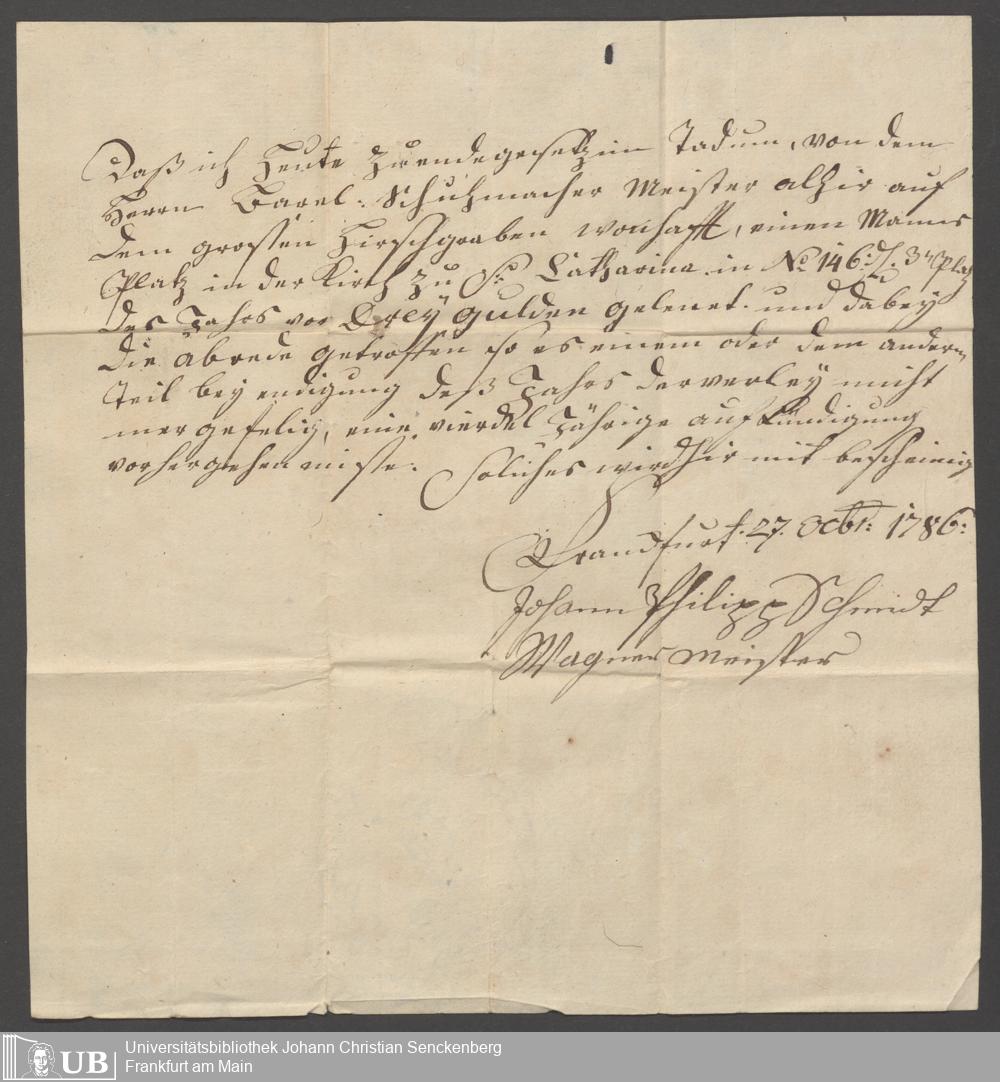 Daß ich heute zu endegesetzim Tadum, von dem
Herrn Barel. Schuhmacher Meister alhir auf
dem grossen Hirschgraben wonhafft, einen Manns
Platz in der Kirch zu St. Catharina in No. 146 3r Platz
des Jahrs vor Drey gulden gelenet. und dabey
die abrede getroffen so es einem oder dem andern
teil bey endigung deß Jahrs der verley nicht
mer gefelig, eine vierdel Jährige aufkündigung
vorhergehen miste. Solches wird hir mit bescheinig
Franckfurt. 27. Octbr: 1786:
Johann Philipp Schmidt
Wagner meister
UB
Universitätsbibliothek Johann Christian Senckenberg
Frankfurt am Main